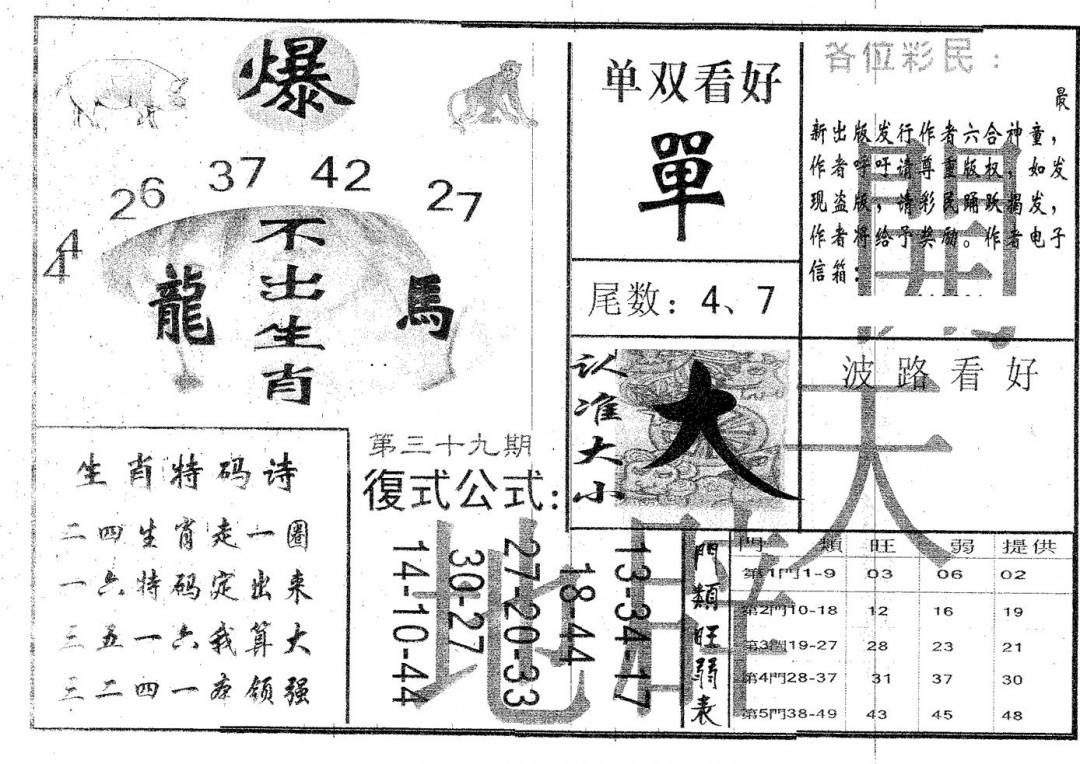 爆
26 37 42 27
44
不出生肖
龍 馬
单双看好
單
尾数：4、7
认准大小
大
各位彩民：
最
新出版发行作者六合神童，
作者呼吁请尊重版权，如发
现盗版，请彩民踊跃揭发，
作者将给予奖励。作者电子
信箱：
波路看好
生肖特码诗
二四生肖走一圈
一六特码定出来
三五一六我算大
三二四一夺领强
第三十九期
復式公式：
14-10-44
30-27
27-20-33
18-44
13-34-17
門類旺弱表
門類 旺 弱 提供
第1門1-9 03 06 02
第2門10-18 12 16 19
第3門19-27 28 23 21
第4門28-37 31 37 30
第5門38-49 43 45 48
開天